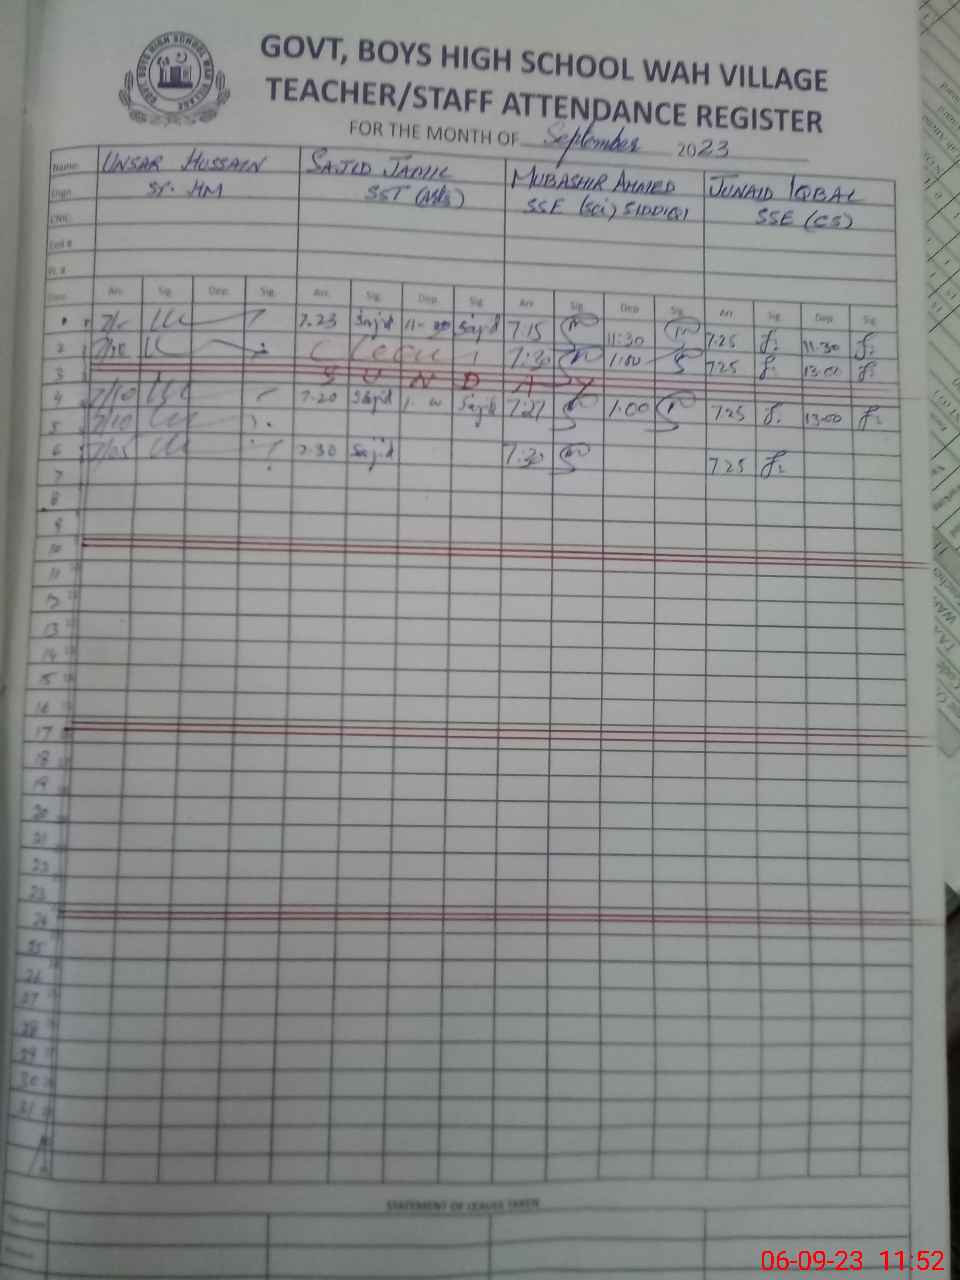 GOVT, BOYS HIGH SCHOOL WAH VILLAGE
TEACHER/STAFF ATTENDANCE REGISTER
FOR THE MONTH OF September 2023
Name UNSAR HUSSAIN SAJID JAMIL MUBASHIR AHMED JUNAID IQBAL
Sr. HM SST SSE (Sci) SIDDIQI SSE (CS)
CNIC
Arr. Sig. Dep. Sig. Arr. Sig. Dep. Sig. Arr. Sig. Dep. Sig. Arr. Sig. Dep. Sig.
7.23 Sajid Sajid 7.15 11:30 7.25 11:30
2 7:30 1:00 7.25 13:00
3 SUNDAY
4 7/10 7.20 Sajid Sajid 7:27 1:00 7.25 13:00
5 7/10
6 7/05 7.30 Sajid 7:30 7.25
7
8
9
10
11
12
13
14
15
16
17
18
19
20
21
22
23
24
25
26
27
28
29
30
31
STATEMENT OF LEAVES TAKEN
06-09-23 11:52